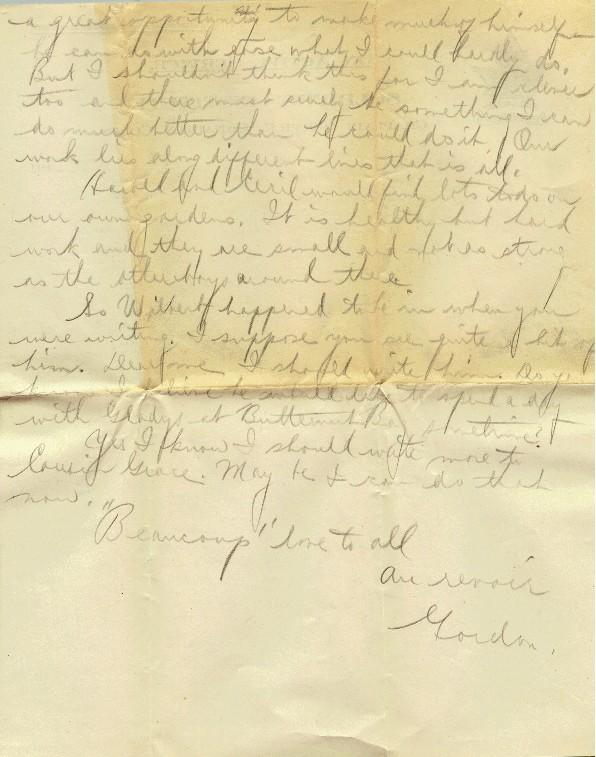 a great opportunity to make much of himself
he can do with ease what I could hardly do.
But I shouldn't think this for I am clever
too and there must surely be something I can
do much better than he could do it. Our
work lies along different lines that is all.
Harold and Cecil would find lots to do on
our own gardens. It is healthy but hard
work and they are small and not as strong
as the other boys around there
So Wilbert happened to be in when you
were writing. I suppose you see quite a bit of
him. Dear me I should write him. Do you
know I believe he would like to spend a day
with Gladys at Butternut Bay sometime?
Yes I know I should write more to
Cousin Grace. May be I can do that
now.
"Beaucoup" love to all
Au revoir
Gordon.